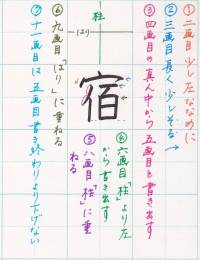 ①二画目 少し左ななめに
②三画目 長く少しそる→
③四画目の真ん中から五画目を書き出す
柱
はり
宿
④六画目「柱」より左
から書き出す
⑤八画目「柱」に重
ねる
⑥九画目「はり」に重ねる
⑦十一画目は五画目書き終わりより下げない